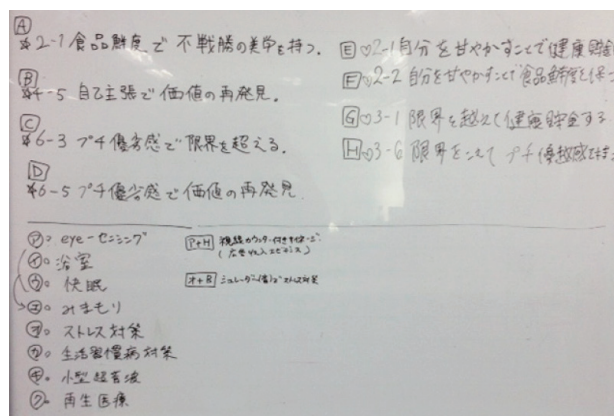 A
※2-1 食品鮮度で不戦勝の美学を持つ.
B
※4-5 自己主張で価値の再発見.
C
※6-3 プチ優劣感で限界を超える.
D
※6-5 プチ優劣感で価値の再発見
E ♡2-1 自分を甘やかすことで健康貯金
F ♡2-2 自分を甘やかすことで食品鮮度を保つ
G ♡3-1 限界を越えて健康貯金する
H ♡3-6 限界をこえてプチ優越感を持つ
ア。eye-センシング
イ。浴室
ウ。快眠
エ。みまもり
オ。ストレス対策
カ。生活習慣病対策
キ。小型超音波
ク。再生医療
P+H 視線カウンター付き
オ+B ストレス対策